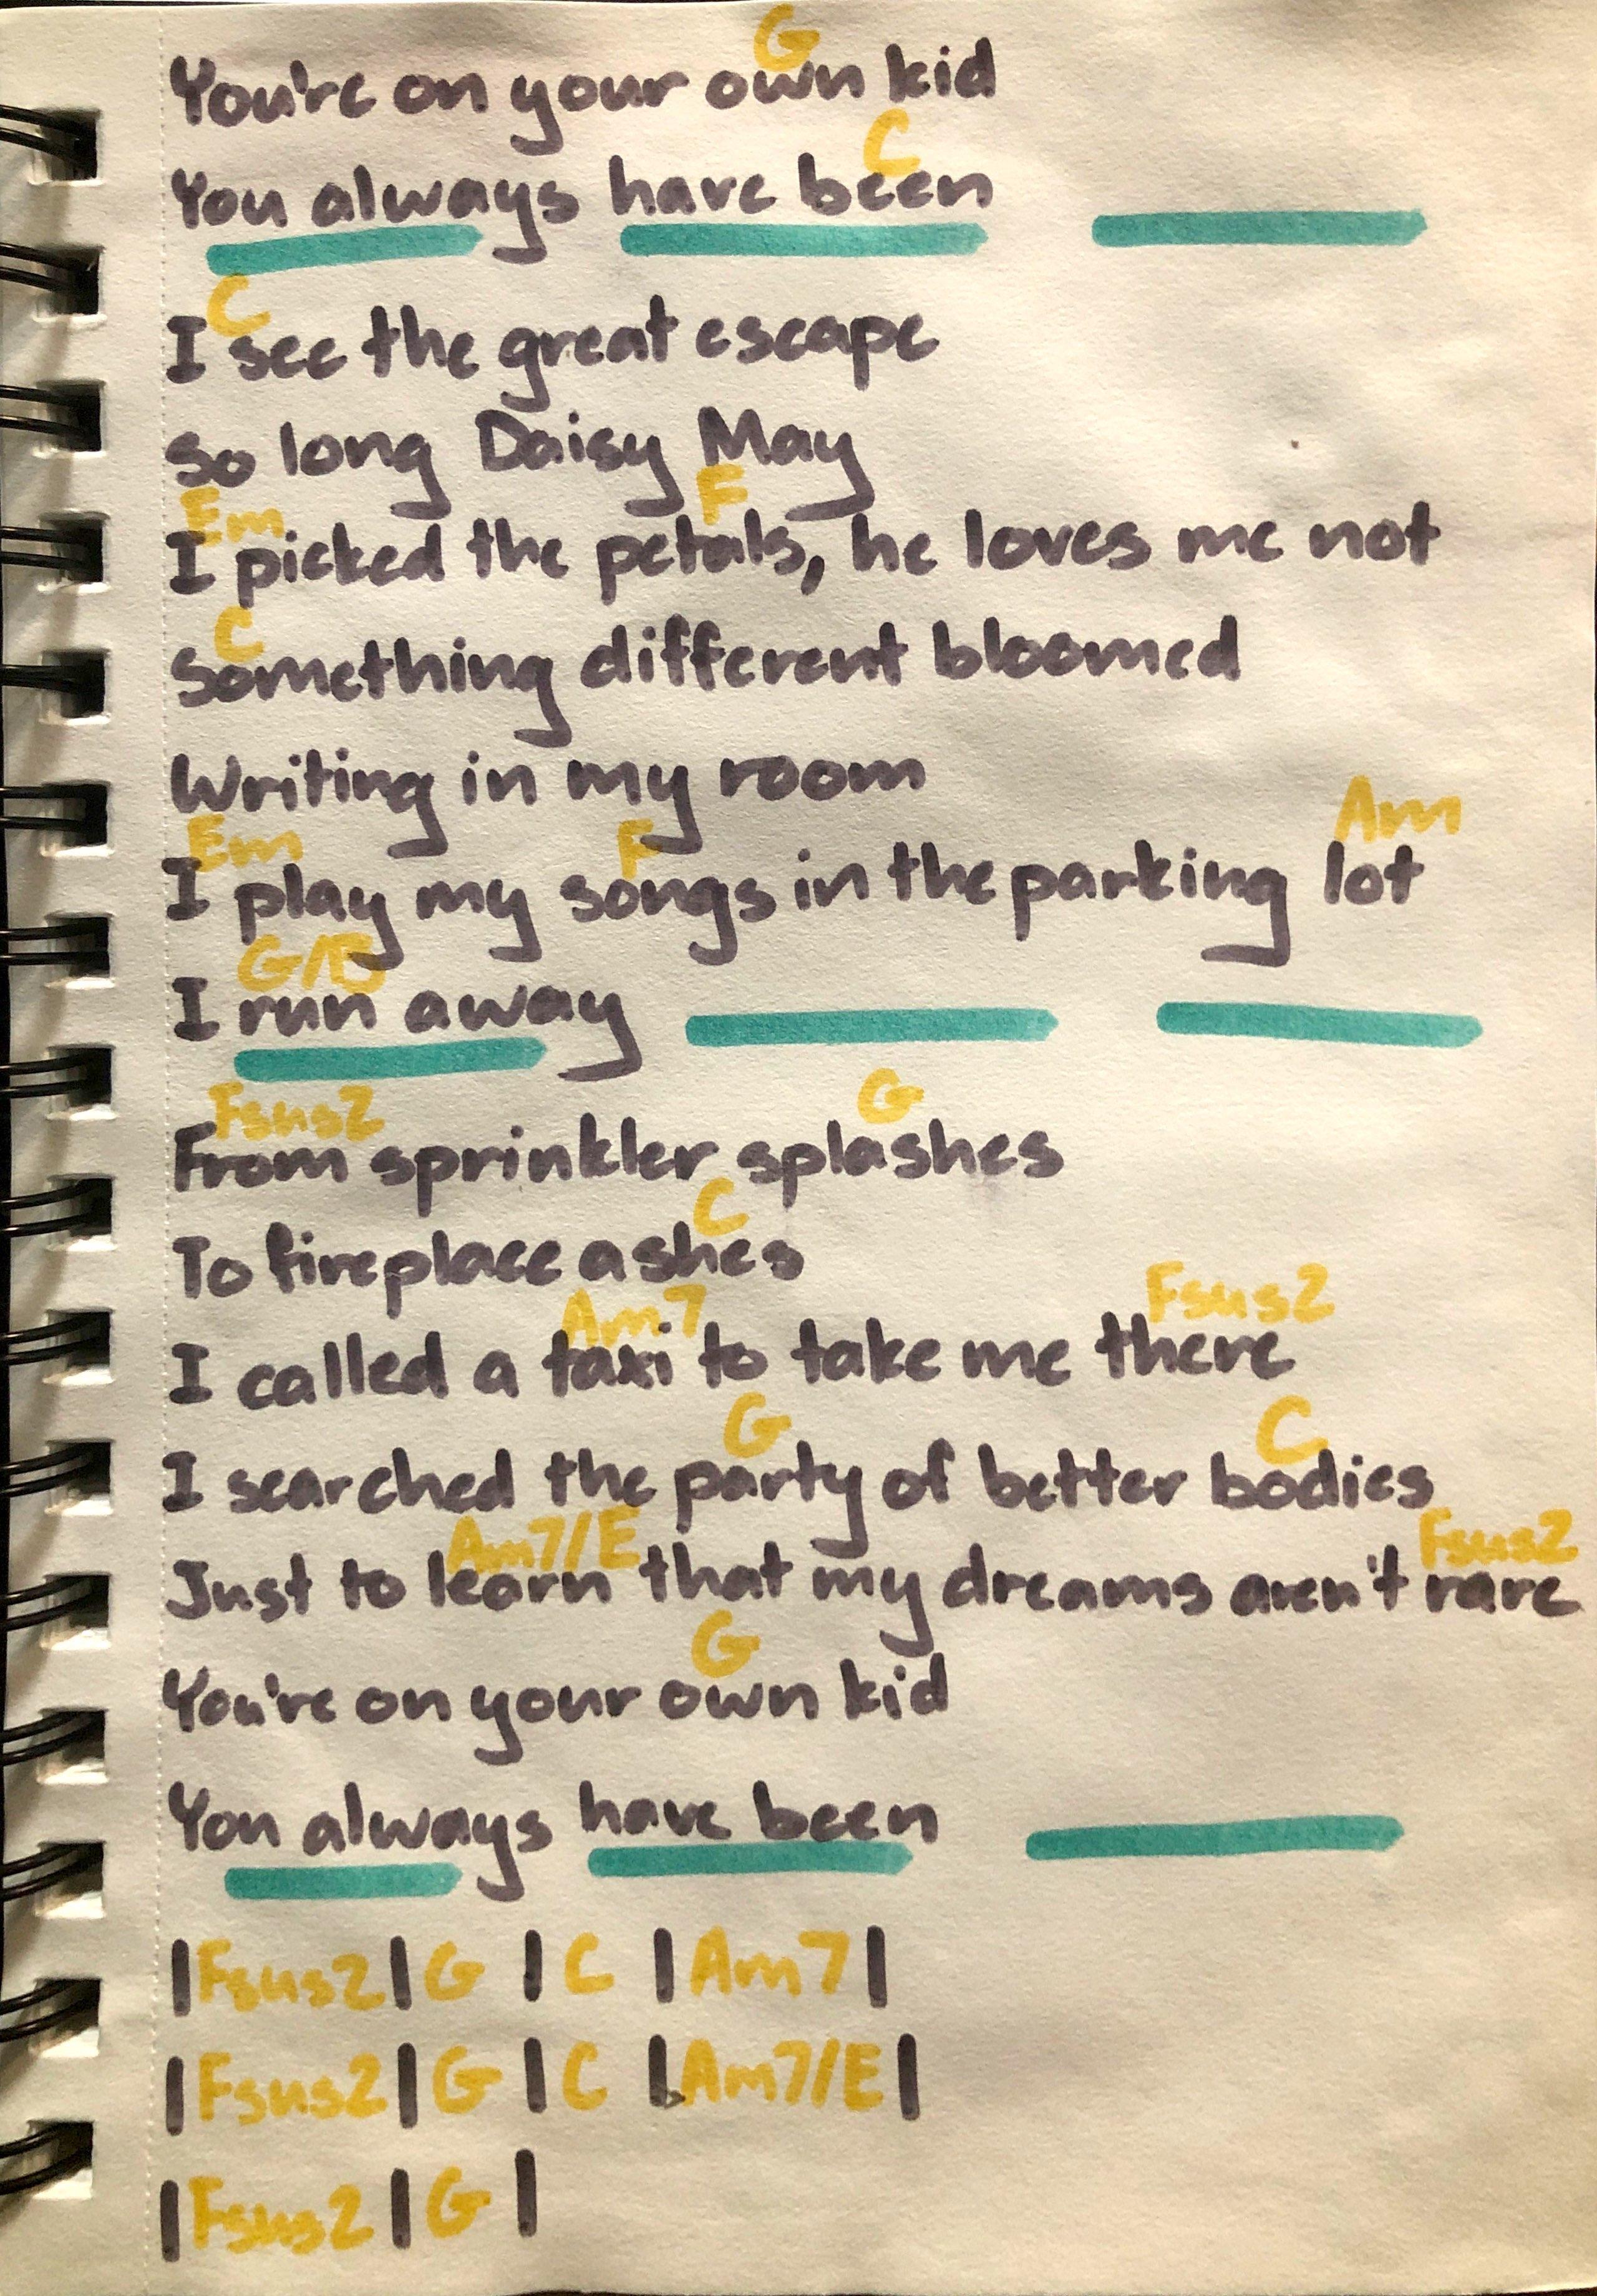 G
You're on your own kid
C
You always have been
C
I see the great escape
So long Daisy May
Em F
I picked the petals, he loves me not
C
Something different bloomed
Writing in my room
Em F Am
I play my songs in the parking lot
G/B
I run away
Fsus2 G
From sprinkler splashes
C
To fireplace ashes
Am7 Fsus2
I called a taxi to take me there
G C
I searched the party of better bodies
Am7/E Fsus2
Just to learn that my dreams aren't rare
G
You're on your own kid
You always have been
|Fsus2|G|C|Am7|
|Fsus2|G|C|Am7/E|
|Fsus2|G|